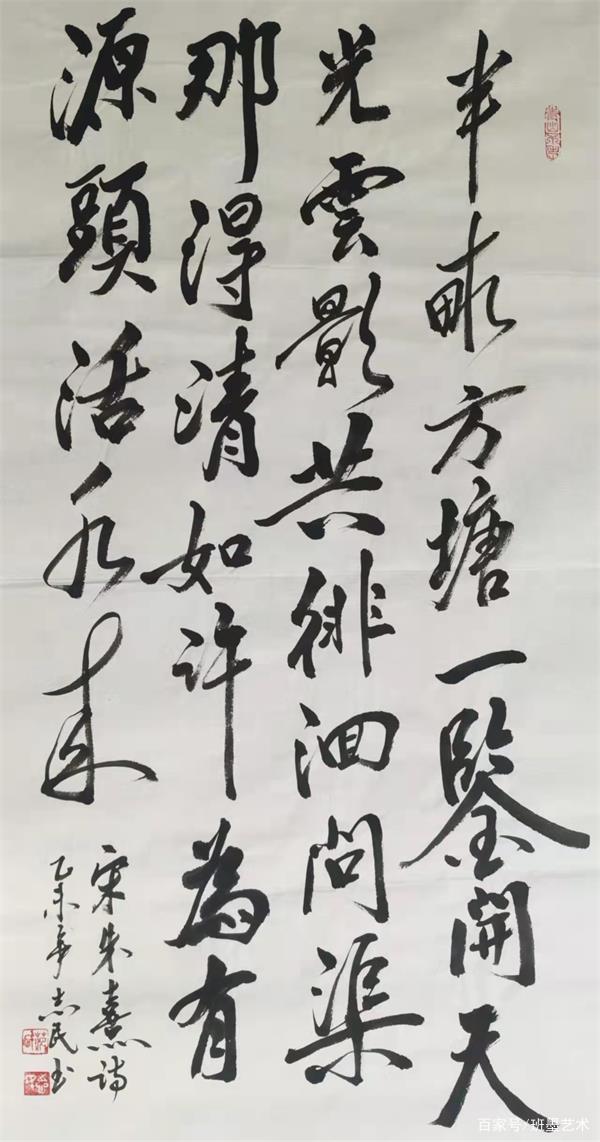 半畝方塘一鑒開天
光雲影共徘徊問渠
那得清如許為有
源頭活水來
宋朱熹詩
乙未年志民书
百家号/班墨艺术